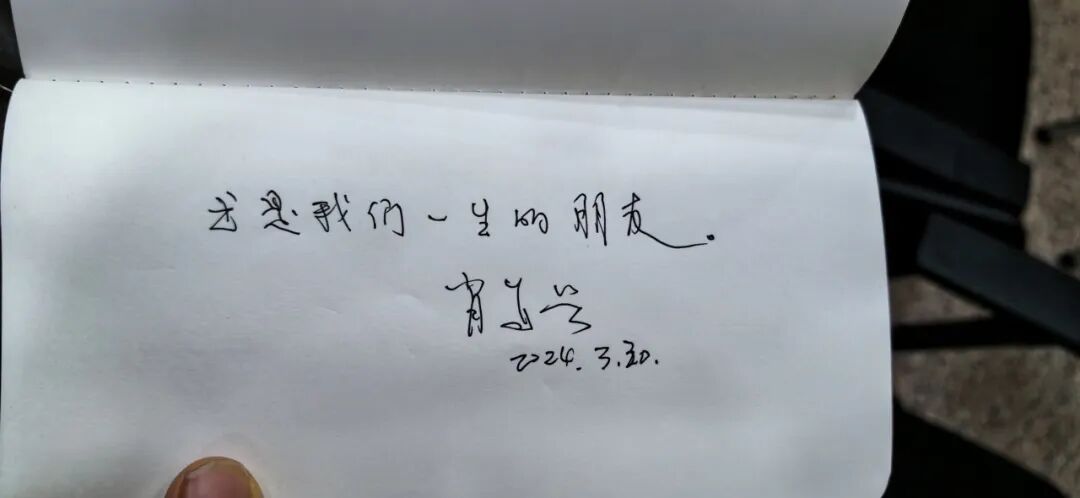 书是我们一生的朋友.
肖复兴
2024.3.30.